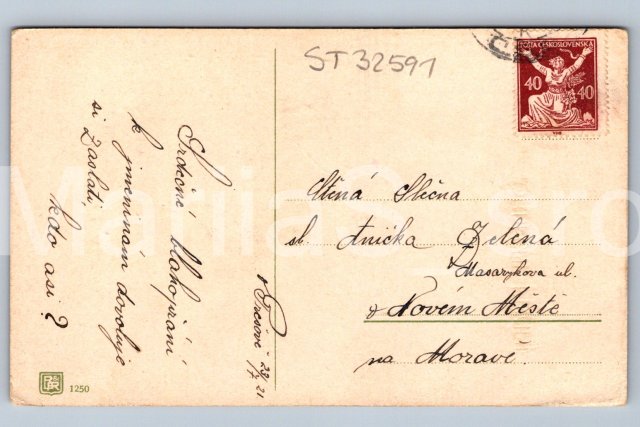 ST 32591
POŠTA ČESKOSLOVENSKÁ
40 40
Srdečné blahopřání
k jmeninám dovoluje
si zaslati,
kdo asi?
29/7 21
Ctěná Slečna
sl. Anička Zelená
Masarykova ul.
v Novém Městě
na Moravě.
1250